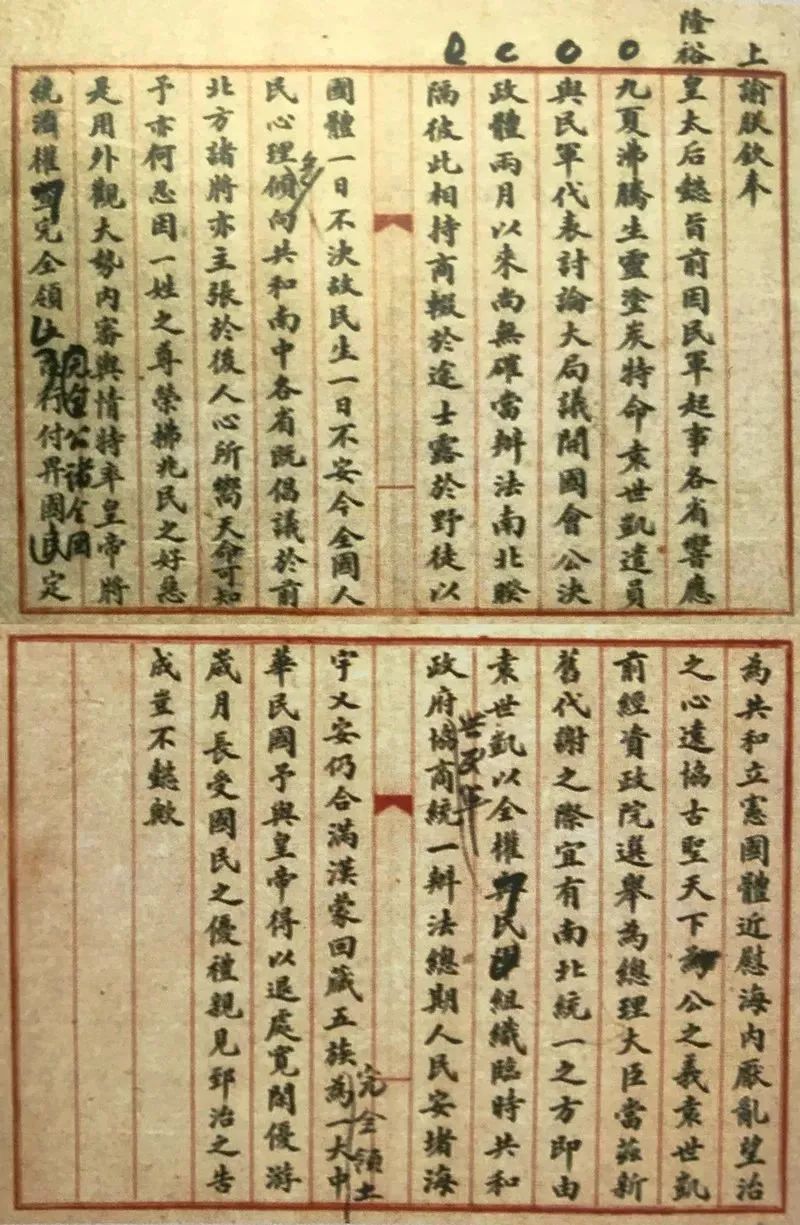 上諭朕欽奉
隆裕皇太后懿旨前因民軍起事各省響應
九夏沸騰生靈塗炭特命袁世凱遣員
與民軍代表討論大局議開國會公決
政體兩月以來尚無確當辦法南北睽
隔彼此相持商輟於途士露於野徒以
國體一日不決故民生一日不安今全國人
民心理多傾向共和南中各省既倡議於前
北方諸將亦主張於後人心所嚮天命可知
予亦何忍因一姓之尊榮拂兆民之好惡
是用外觀大勢內審輿情特率皇帝將
統治權完全領土行付畀國民定
公諸全國
為共和立憲國體近慰海內厭亂望治
之心遠協古聖天下為公之義袁世凱
前經資政院選舉為總理大臣當茲新
舊代謝之際宜有南北統一之方即由
袁世凱以全權與民組織臨時共和
民軍
政府協商統一辦法總期人民安堵海
宇乂安仍合滿漢蒙回藏五族完全領土為一大中
華民國予與皇帝得以退處寬閒優游
歲月長受國民之優禮親見郅治之告
成豈不懿歟